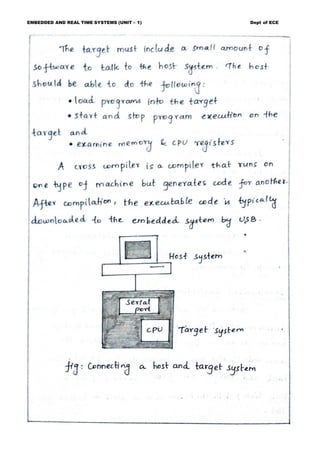 EMBEDDED AND REAL TIME SYSTEMS (UNIT - 1) Dept of ECE
The target must include a small amount of
software to talk to the host system. The host
should be able to do the following:
• load programs into the target
• start and stop program execution on the
target and
• examine memory & CPU registers
A cross compiler is a compiler that runs on
one type of machine but generates code for another.
After compilation, the executable code is typically
downloaded to the embedded system by USB.
Host system
Serial
port
CPU
Target system
fig: Connecting a host and target system